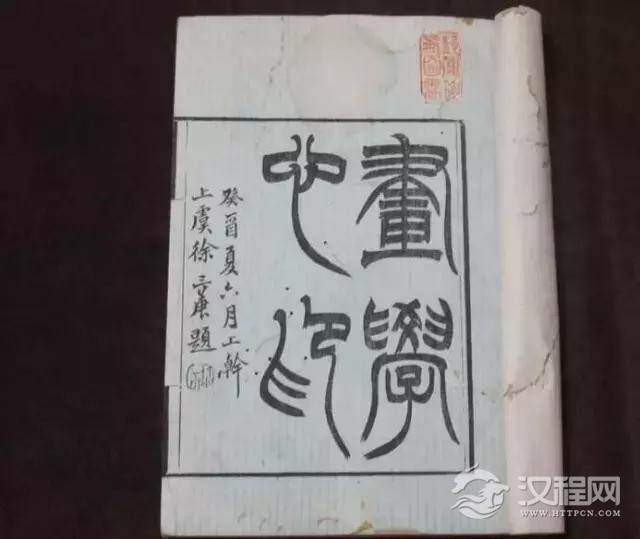 畫學
心印
癸酉夏六月上澣
上虞徐三庚題
汉程网
WWW.HTTPCN.COM